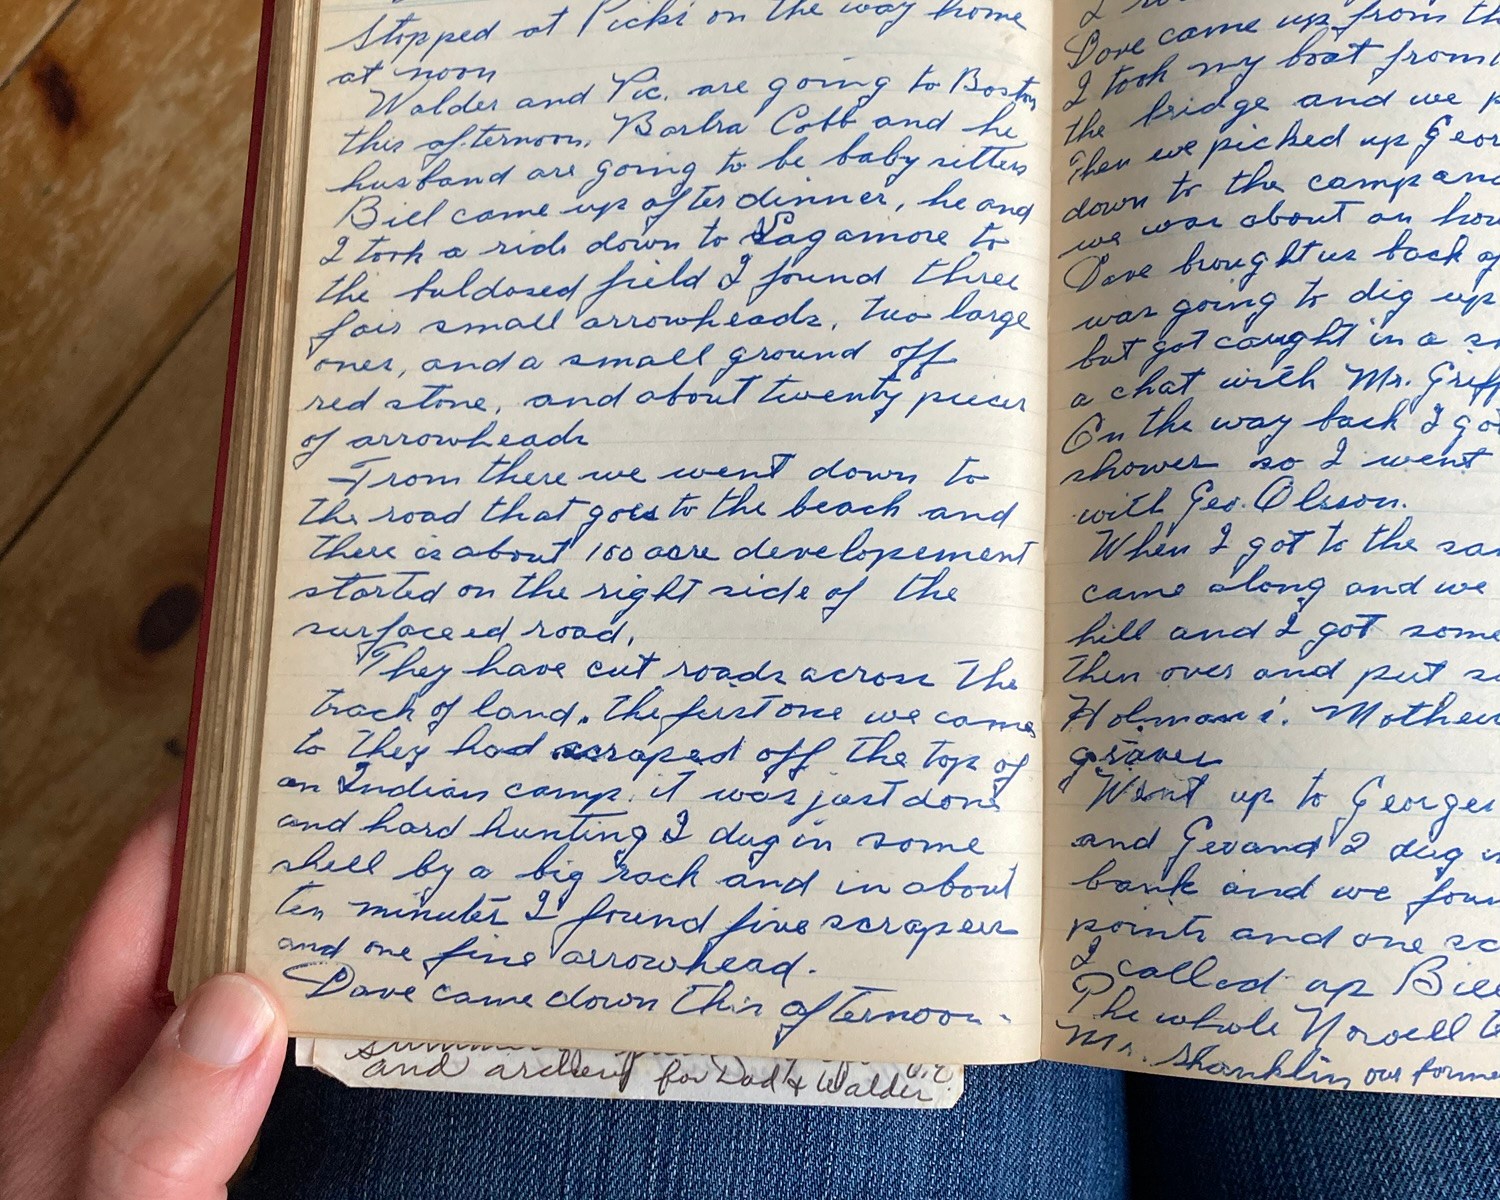 Stopped at Picks on the way home
at noon
Walder and Pic. are going to Boston
this afternoon. Barbra Cobb and he
husband are going to be baby sitters
Bill came up after dinner, he and
I took a ride down to Sagamore to
the buldosed field I found three
fair small arrowheads, two large
ones, and a small ground off
red stone, and about twenty pieces
of arrowheads
From there we went down to
the road that goes to the beach and
there is about 100 acre developement
started on the right side of the
surfaceed road.
They have cut roads across the
track of land. the first one we came
to they had scraped off the top of
an Indian camp. it was just done
and hard hunting I dug in some
shell by a big rock and in about
ten minutes I found five scrapers
and one fine arrowhead.
Dave came down this afternoon.
and for Dad & Walder
Dave came up from
I took my boat from
the bridge and we
Then we picked up
down to the camp and
we was about an
Dave brought us back
was going to dig up
but got caught in a
a chat with Mr.
On the way back I
shower so I went
with Geo. Olsson.
When I got to the
came along and we
hill and I got some
then over and put
Holmans.
graves
Went up to Georges
and Geo and I dug
bank and we
points and one
I called up Bill
The whole Norvell
Mr. Shanklin our